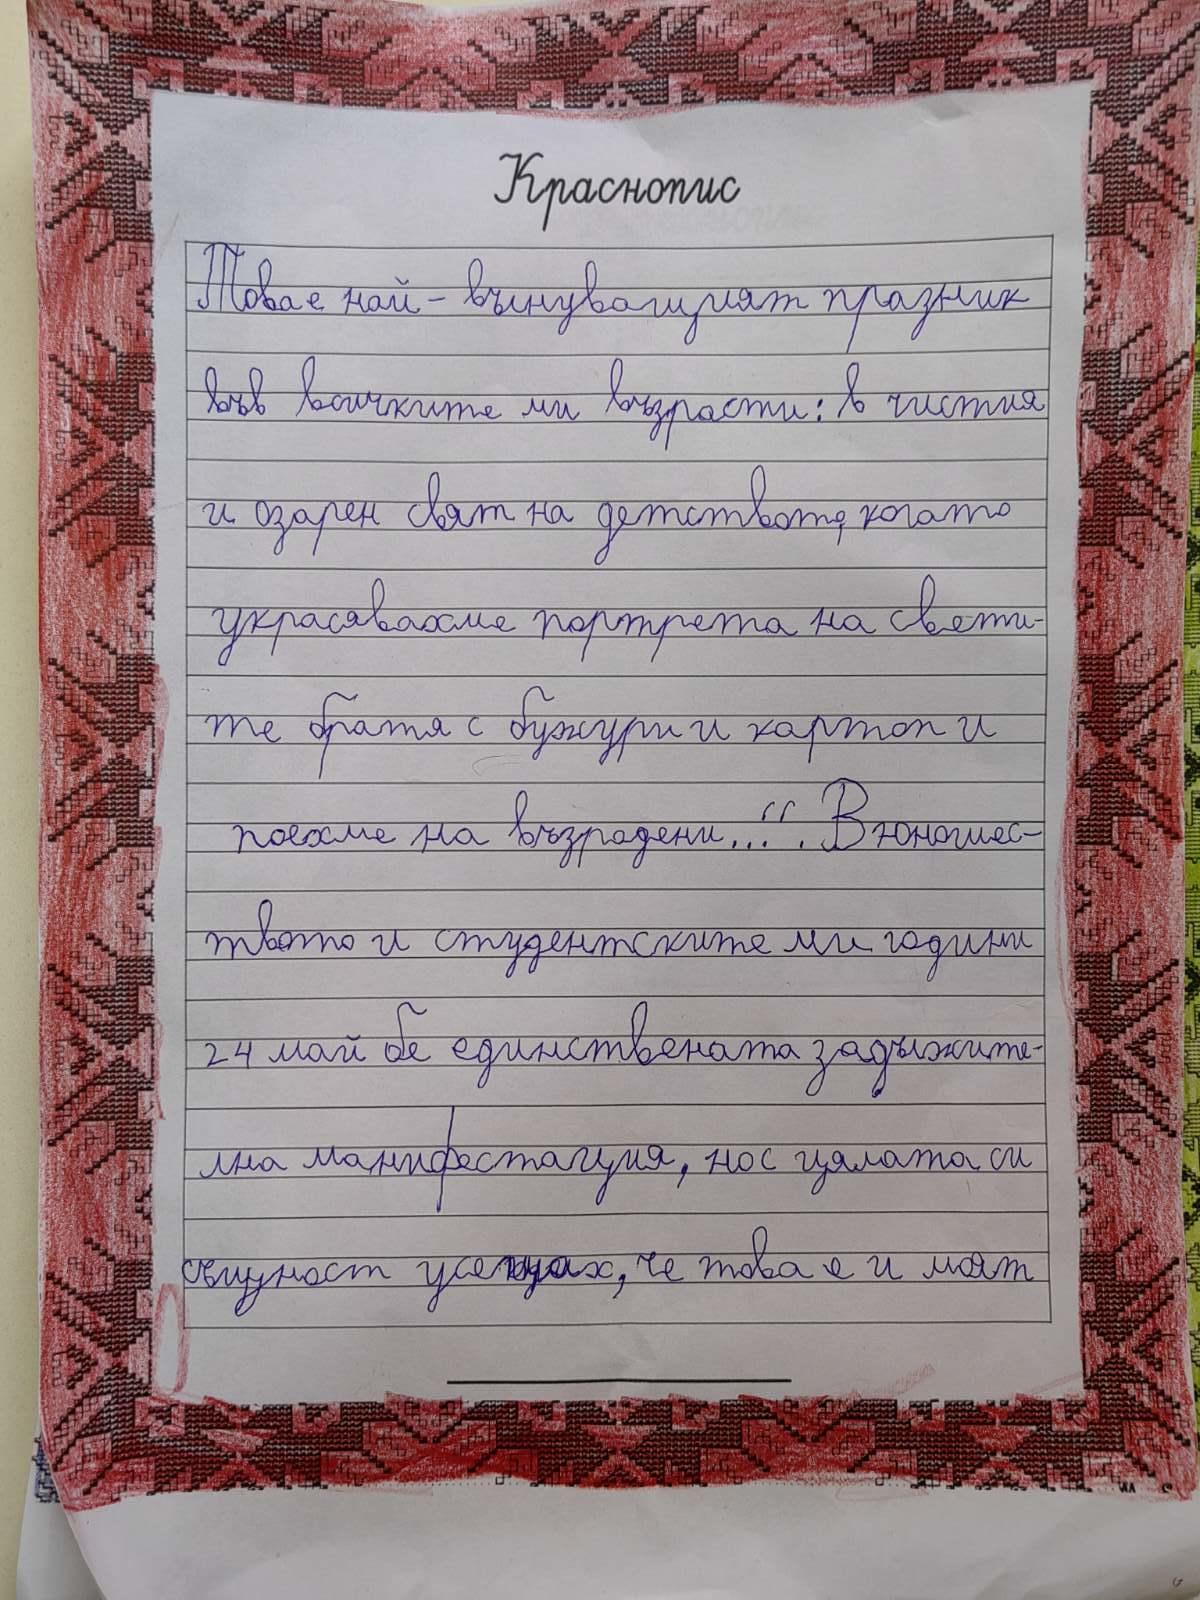 Краснопис
Това е най-вълнуващият празник
във всичките ми възрасти: в чистия
и озарен свят на детството, когато
украсявахме портрета на свети-
те братя с бужури и картоп и
поехме на възрадени...“. В юношес-
твото и студентските ми години
24 май бе единствената задължите-
лна манифестация, но с цялата си
същност усещах, че това е и моят